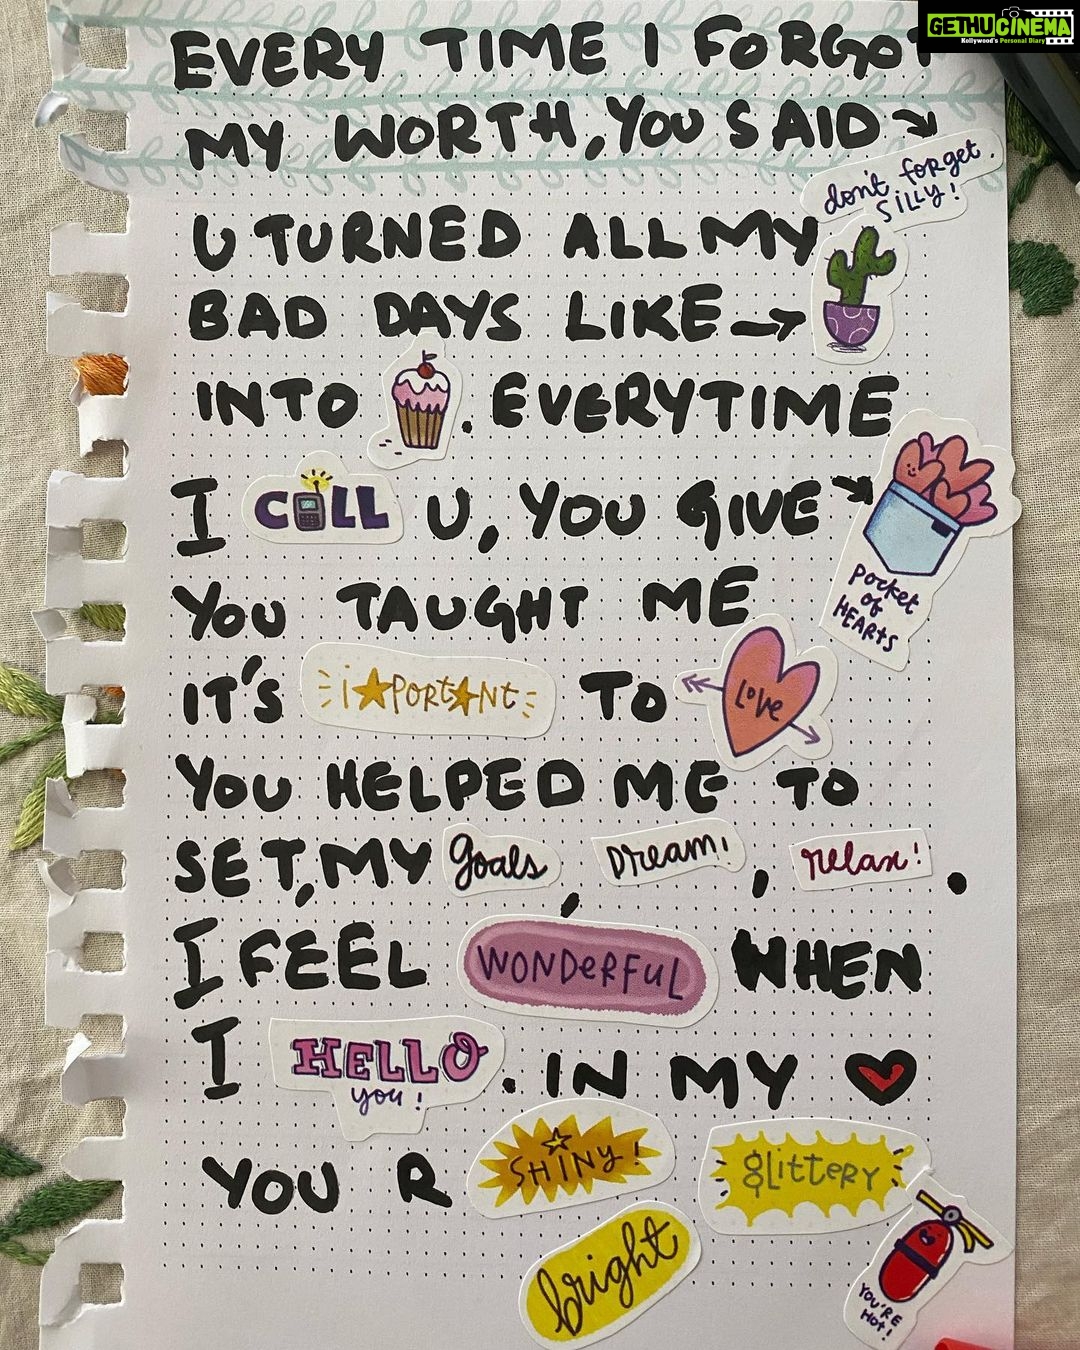 GETHU CINEMA
Kollywood's Personal Diary
EVERY TIME I FORGOT
MY WORTH, YOU SAID
don't forget.
SILLY!
U TURNED ALL MY
BAD DAYS LIKE
INTO . EVERYTIME
I CALL U, YOU GIVE
Pocket
of
HEARTS
YOU TAUGHT ME
IT'S i★PORT★Nt TO LOVE
YOU HELPED ME TO
SET, MY goals, Dream!, relax!.
I FEEL WONDERFUL WHEN
I HELLO . IN MY
you!
YOU R SHINY! gLitteRY
bright
YOU'RE
HOT!